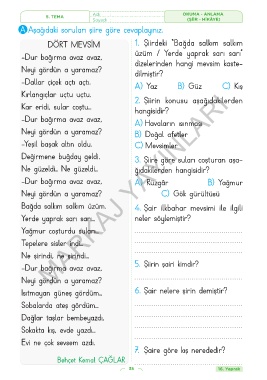 5. TEMA
OKUMA - ANLAMA
(ŞİİR - HİKÂYE)
A Aşağıdaki soruları şiire göre cevaplayınız.
DÖRT MEVSİM
–Dur bağırma avaz avaz,
Neyi gördün a yaramaz?
–Dallar çiçek açtı açtı,
Kırlangıçlar uçtu uçtu,
Kar eridi, sular coştu...
–Dur bağırma avaz avaz,
Neyi gördün a yaramaz?
–Yeşil başak altın oldu.
Değirmene buğday geldi,
Ne güzeldi, Ne güzeldi...
–Dur bağırma avaz avaz,
Neyi gördün a yaramaz?
Bağda salkım salkım üzüm,
Yerde yaprak sarı sarı...
Yağmur coşturdu suları...
Tepelere sisler indi...
Ne şirindi, ne şirindi...
–Dur bağırma avaz avaz,
Neyi gördün a yaramaz?
Isıtmayan güneş gördüm...
Sobalarda ateş gördüm...
Dağlar taşlar bembeyazdı,
Sokakta kış, evde yazdı...
Evi ne çok sevsem azdı.
Behçet Kemal ÇAĞLAR
1. Şiirdeki "Bağda salkım salkım
üzüm / Yerde yaprak sarı sarı"
dizelerinden hangi mevsim kaste-
dilmiştir?
A) Yaz B) Güz C) Kış
2. Şiirin konusu aşağıdakilerden
hangisidir?
A) Havaların ısınması
B) Doğal afetler
C) Mevsimler
3. Şiire göre suları coşturan aşa-
ğıdakilerden hangisidir?
A) Rüzgâr B) Yağmur
C) Gök gürültüsü
4. Şair ilkbahar mevsimi ile ilgili
neler söylemiştir?
5. Şiirin şairi kimdir?
6. Şair nelere şirin demiştir?
7. Şaire göre kış nerededir?
MARKAJ YAYINLARI